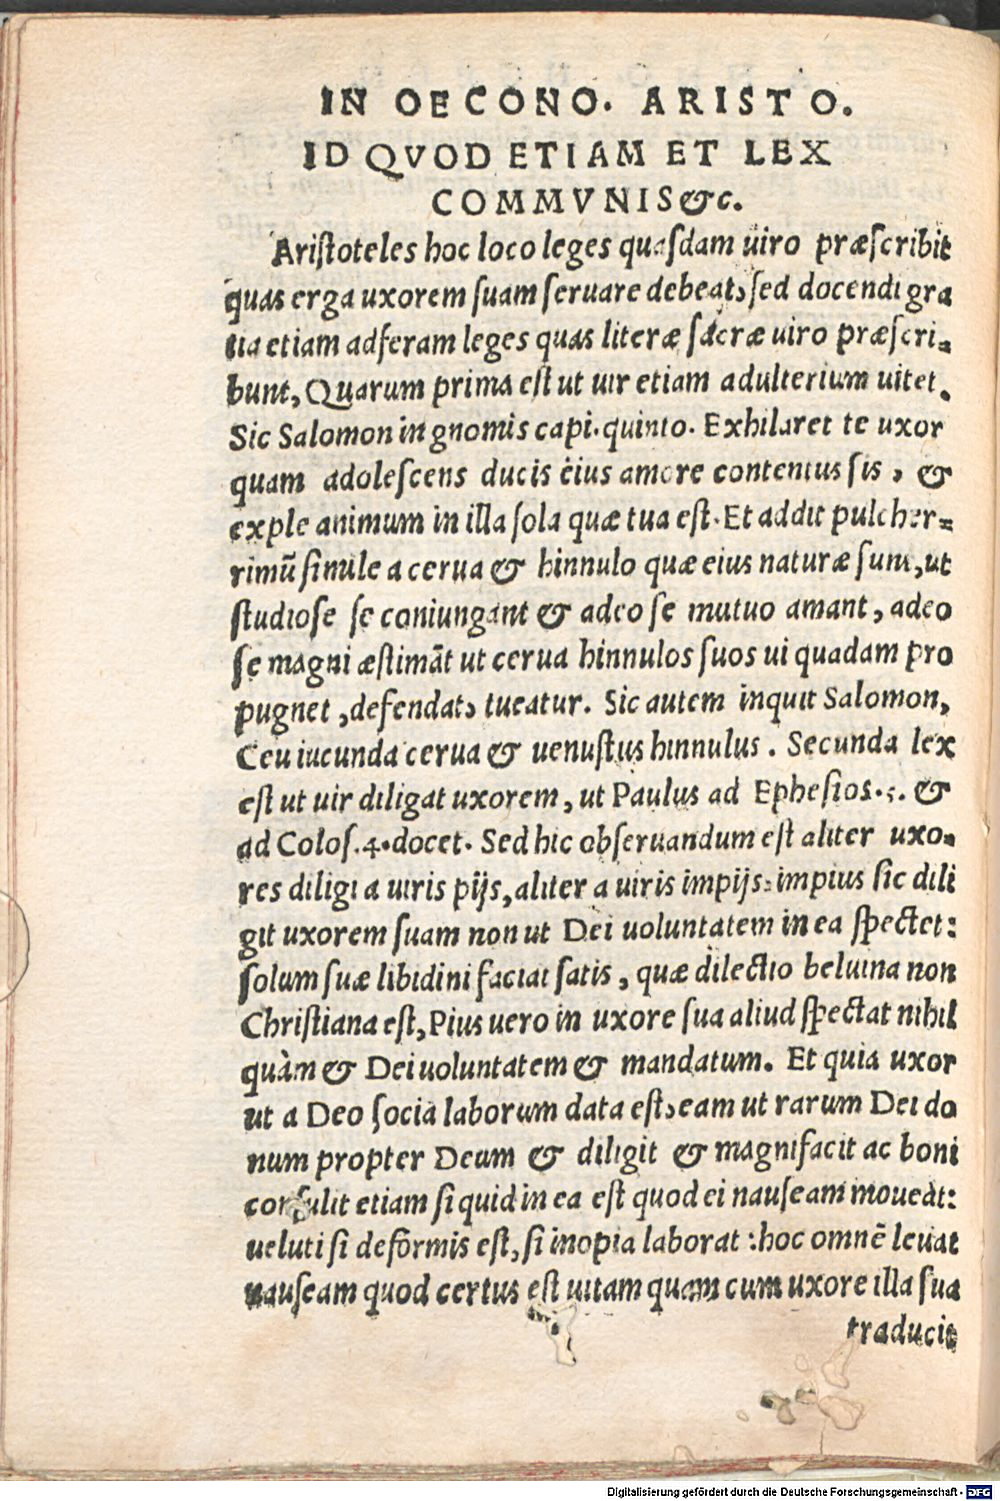 IN OECONO. ARISTO.
ID QVOD ETIAM ET LEX
COMMVNIS &c.
Ariſtoteles hoc loco leges quaſdam uiro præſcribit
quas erga uxorem ſuam ſeruare debeat, ſed docendi gra
tia etiam adferam leges quas literæ ſacræ uiro præſcri-
bunt, Quarum prima eſt ut uir etiam adulterium uitet.
Sic Salomon in gnomis capi. quinto. Exhilaret te uxor
quam adoleſcens ducis eius amore contentus ſis, &
exple animum in illa ſola quæ tua eſt. Et addit pulcher-
rimū ſimile a cerua & hinnulo quæ eius naturæ ſunt, ut
ſtudioſe ſe coniungant & adeo ſe mutuo amant, adeo
ſe magni æſtimāt ut cerua hinnulos ſuos ui quadam pro
pugnet, defendat, tueatur. Sic autem inquit Salomon,
Ceu iucunda cerua & uenuſtus hinnulus. Secunda lex
eſt ut uir diligat uxorem, ut Paulus ad Epheſios. 5. &
ad Coloſ. 4. docet. Sed hic obſeruandum eſt aliter uxo-
res diligi a uiris pijs, aliter a uiris impijs: impius ſic dili
git uxorem ſuam non ut Dei uoluntatem in ea ſpectet:
ſolum ſuæ libidini faciat ſatis, quæ dilectio beluina non
Chriſtiana eſt, Pius uero in uxore ſua aliud ſpectat nihil
quàm & Dei uoluntatem & mandatum. Et quia uxor
ut a Deo ſocia laborum data eſt, eam ut rarum Dei do
num propter Deum & diligit & magnifacit ac boni
conſulit etiam ſi quid in ea eſt quod ei nauſeam moueat:
ueluti ſi deformis eſt, ſi inopia laborat: hoc omnē leuat
nauſeam quod certus eſt uitam quam cum uxore illa ſua
traducit
Digitalisierung gefördert durch die Deutsche Forschungsgemeinschaft - DFG